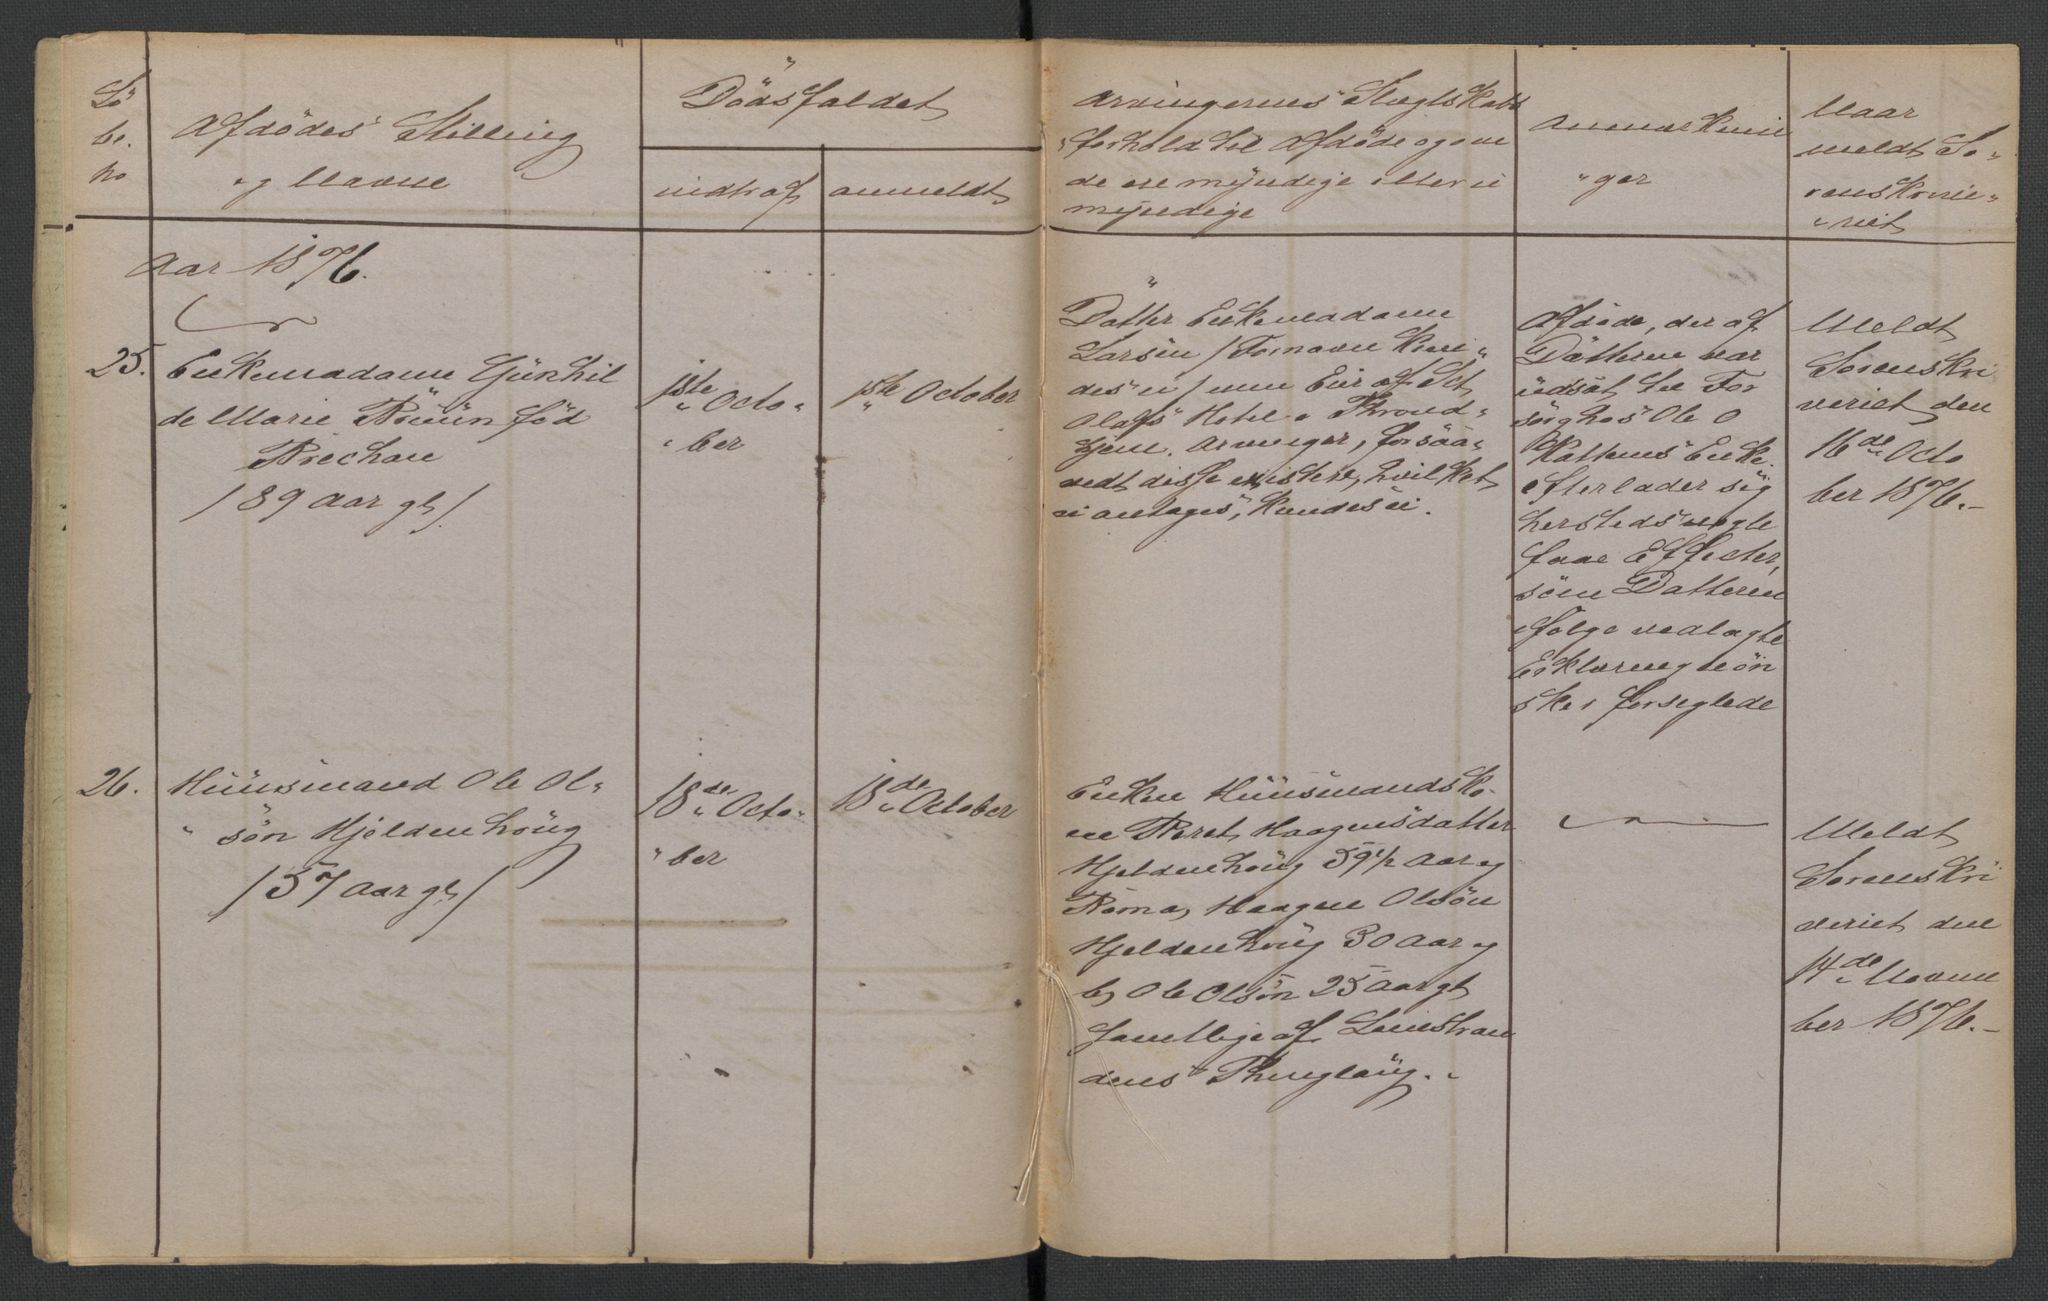 Lö
be.
no
Afdødes Stilling
og Navne
Dödsfaldet
indtraf
anmeldt
Arvingernes Slægtskabs
forhold til Afdöde og om
de ere myndige eller u
myndige
Anmærknin
"ger
Naar
meldt So"
renskrive"
riet
Aar 1876.
25.
Enkemadame Gunhil
de Marie Bruun föd
Brechan
/89 Aar gl/.
1ste Octo"
"ber
1ste October
Datter Enkemadame
Larsen / Fornavn kjen"
des ei / nu Eier af St.
Olafs Hotel i Thrond"
hjem. Arvinger, forsaa"
vidt disse existere, hvilket
ei antages, kjendes ei.
Afdöde, der af
Datteren var
udsat til For
sörg hos Ole O
Rattems Enke
efterlader sig
hersteds nogle
faae Effecter,
som Datteren
ifölge vedlagte
Erklæring ön
skes forseglede
Meldt
Sorenskri
veriet den
16de Octo
ber 1876.-
26.
Huusmand Ole Ol"
"sön Hjeldenhoug
/57 Aar gl/
18de Octo"
"ber
18de October
Enken Huusmandsko"
ne Beret Haagensdatter
Hjeldenhoug 59½ Aar og
Börn a, Haagen Olsön
Hjeldenhoug 30 Aar og
b, Ole Olsön 25 Aar gl
samtlige af Leinstran
dens Thinglaug.
Meldt
Sorenskri
veriet den
14de Novem
ber 1876.-